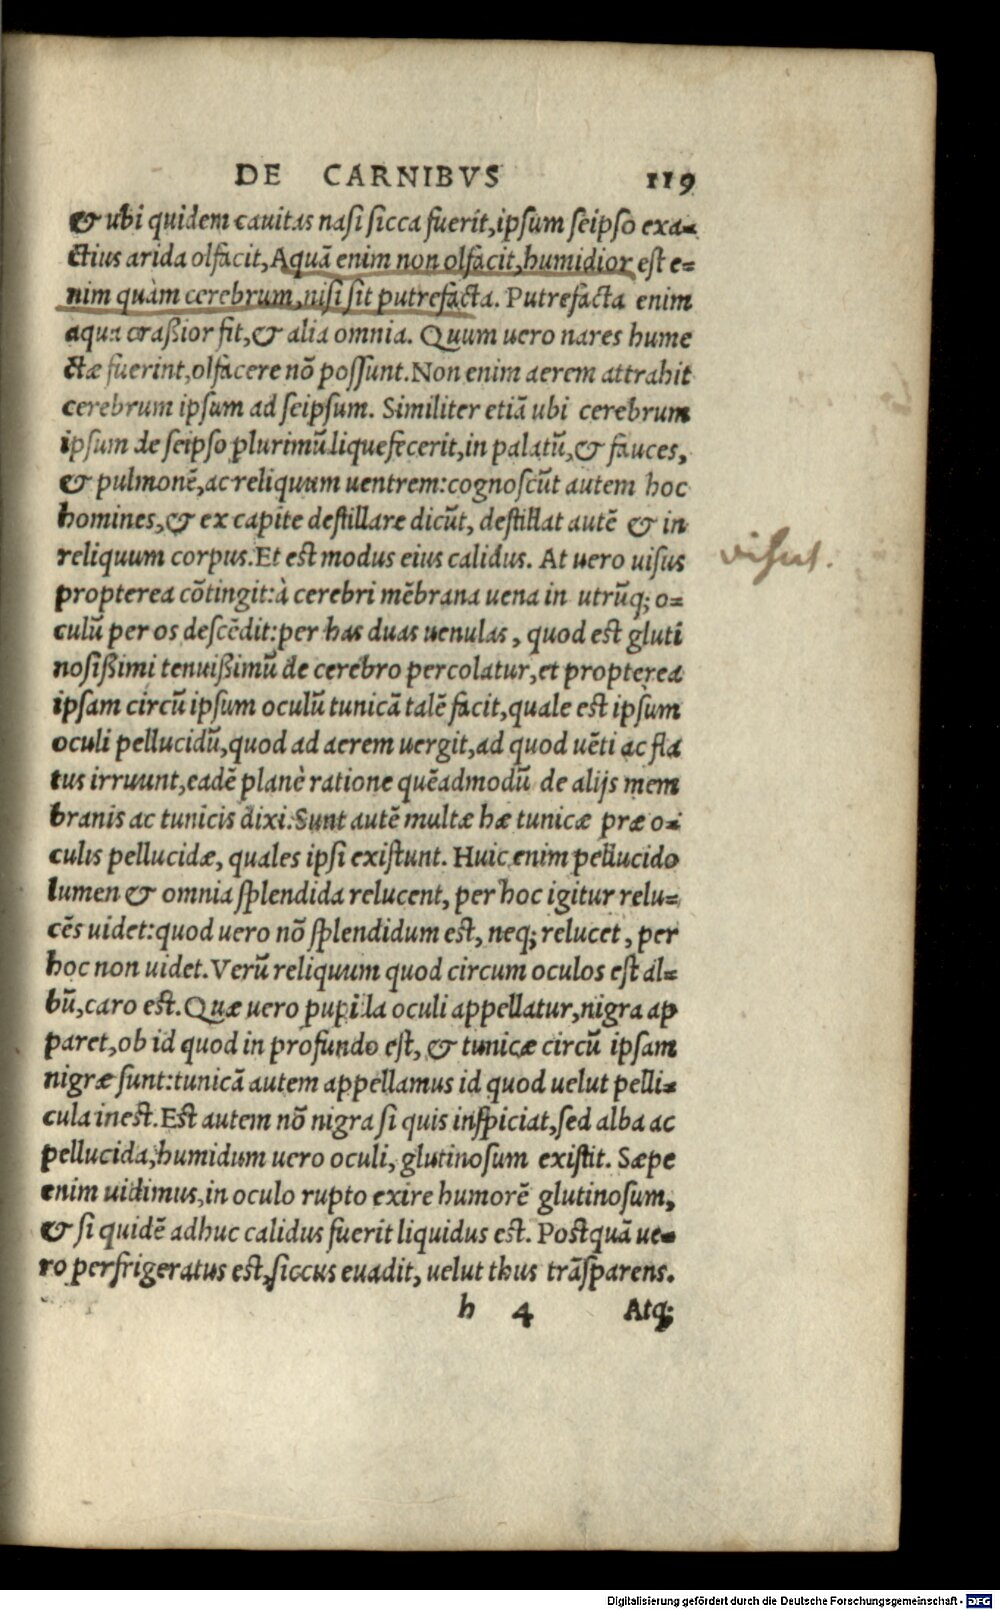 DE CARNIBVS 119
& ubi quidem cauitas nasi sicca fuerit, ipsum seipso exa-
ctius arida olfacit, Aquā enim non olfacit, humidior est e-
nim quàm cerebrum, nisi sit putrefacta. Putrefacta enim
aqua craßior fit, & alia omnia. Quum uero nares hume
ctæ fuerint, olfacere nō possunt. Non enim aerem attrahit
cerebrum ipsum ad seipsum. Similiter etiā ubi cerebrum
ipsum de seipso plurimū liquefecerit, in palatū, & fauces,
& pulmonē, ac reliquum uentrem: cognoscūt autem hoc
homines, & ex capite destillare dicūt, destillat autē & in
reliquum corpus. Et est modus eius calidus. At uero uisus
propterea cōtingit: à cerebri mēbrana uena in utrūq; o-
culū per os descēdit: per has duas uenulas, quod est gluti
nosißimi tenuißimū de cerebro percolatur, et propterea
ipsam circū ipsum oculū tunicā talē facit, quale est ipsum
oculi pellucidū, quod ad aerem uergit, ad quod uēti ac fla
tus irruunt, eadē planè ratione quēadmodū de alijs mem
branis ac tunicis dixi. Sunt autē multæ hæ tunicæ præ o-
culis pellucidæ, quales ipsi existunt. Huic enim pellucido
lumen & omnia splendida relucent, per hoc igitur relu-
cēs uidet: quod uero nō splendidum est, neq; relucet, per
hoc non uidet. Verū reliquum quod circum oculos est al-
bū, caro est. Quæ uero pupilla oculi appellatur, nigra ap
paret, ob id quod in profundo est, & tunicæ circū ipsam
nigræ sunt: tunicā autem appellamus id quod uelut pelli-
cula inest. Est autem nō nigra si quis inspiciat, sed alba ac
pellucida, humidum uero oculi, glutinosum existit. Sæpe
enim uidimus, in oculo rupto exire humorē glutinosum,
& si quidē adhuc calidus fuerit liquidus est. Postquā ue-
ro perfrigeratus est, siccus euadit, uelut thus trāsparens.
h 4 Atq;
visus.
Digitalisierung gefördert durch die Deutsche Forschungsgemeinschaft - DFG